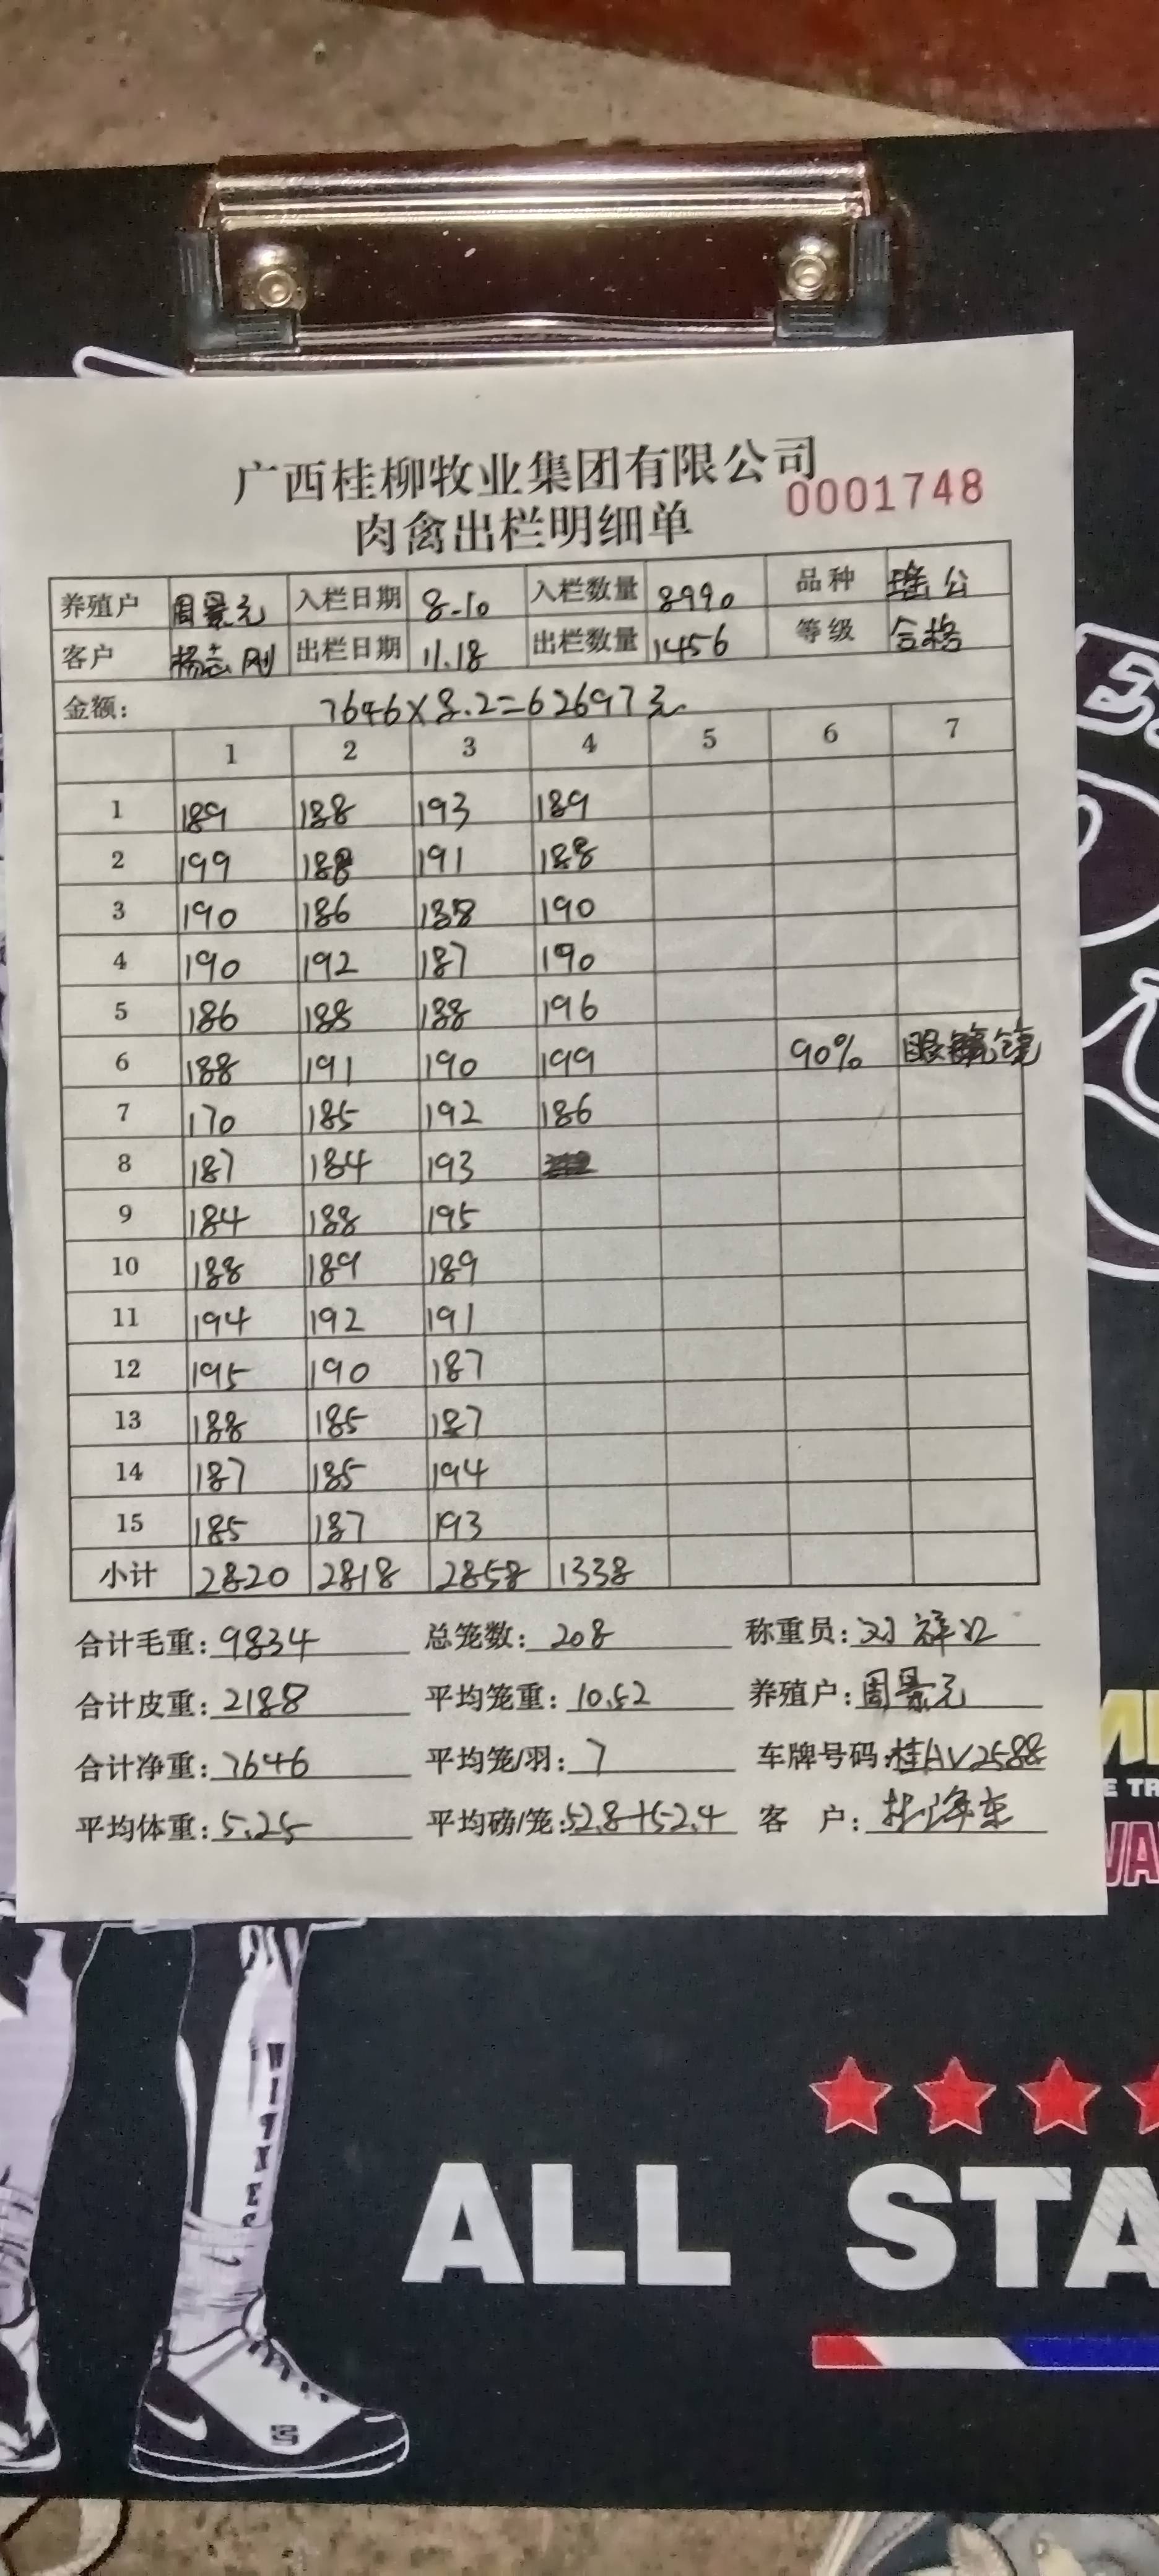 广西桂柳牧业集团有限公司
0001748
肉禽出栏明细单
养殖户 周景元 入栏日期 8-10 入栏数量 8990 品种 瑶公
客户 杨志刚 出栏日期 11.18 出栏数量 1456 等级 合格
金额: 7646×8.2=62697元
1 2 3 4 5 6 7
1 189 188 193 189
2 199 188 191 188
3 190 186 188 190
4 190 192 187 190
5 186 188 188 196
6 188 191 190 199 90% 眼
7 170 185 192 186
8 187 184 193
9 184 188 195
10 188 189 189
11 194 192 191
12 195 190 187
13 188 185 187
14 187 185 194
15 185 187 193
小计 2820 2818 2858 1338
合计毛重: 9834 总笼数: 208 称重员: 刘祥
合计皮重: 2188 平均笼重: 10.52 养殖户: 周景元
合计净重: 7646 平均笼/羽: 7 车牌号码: 桂AV2588
平均体重: 5.25 平均磅/笼: 52.8+52.4 客 户:
ALL STA